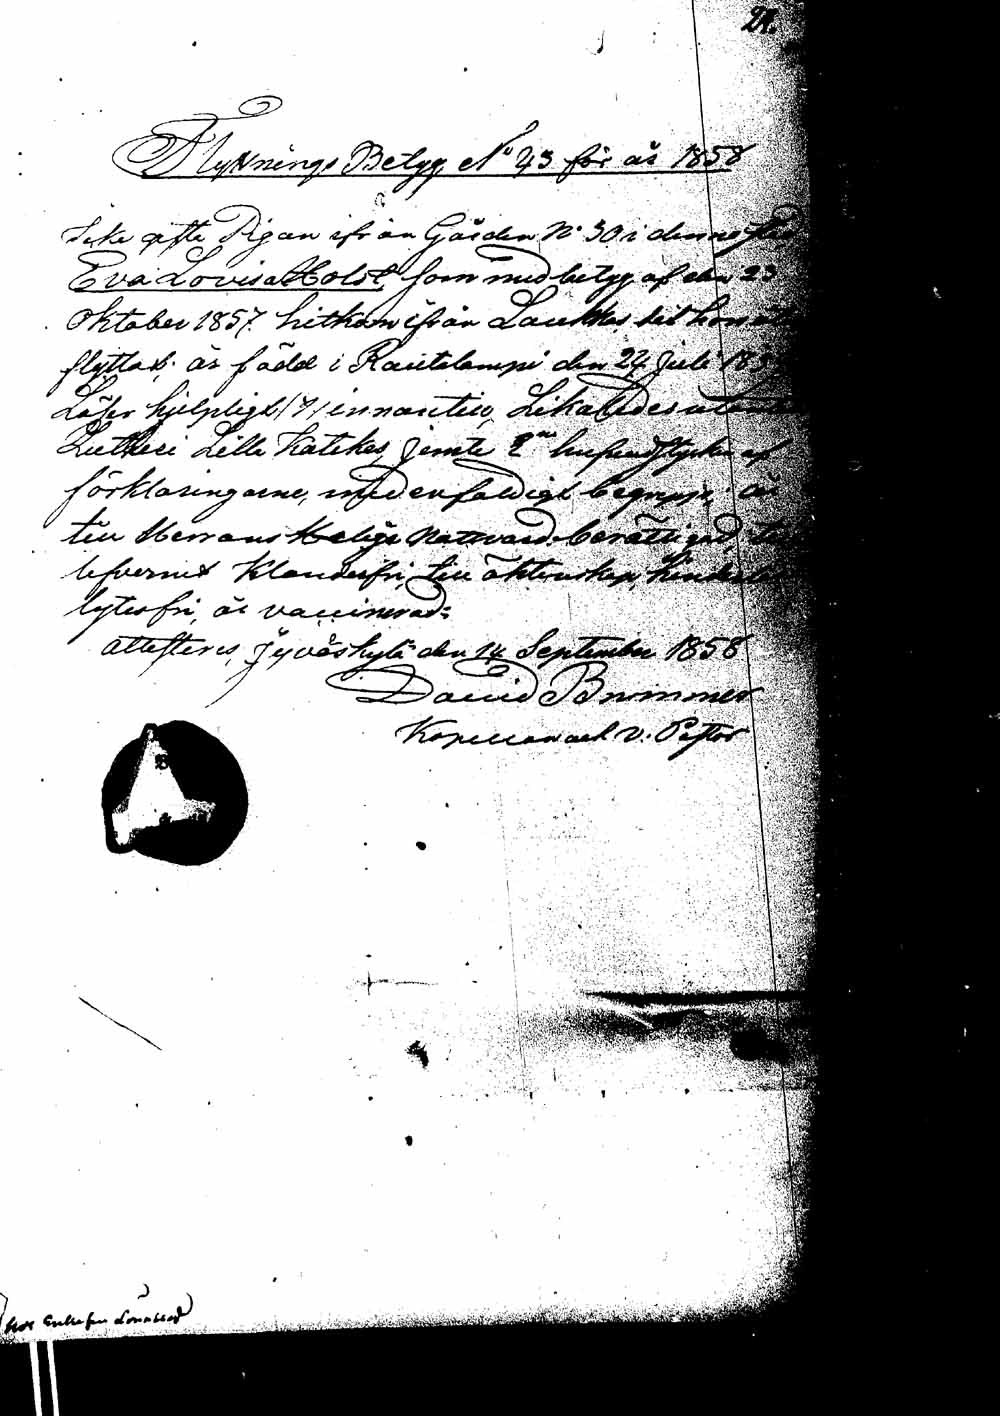 27.
Flyttnings Betyg No 43 för år 1858
Icke gifte Pigan ifrån Gården No 30 i denne stad
Eva Lovisa Holst, som med betyg af den 23
Oktober 1857 hitkom ifrån Laukkas, dit hon
flyttat; är född i Rautalampi den 24 Juli
Läser hjelpligt /7/ innantill, Likaledes utantill
Lutheri Lilla Katekes, jemte 2ne hufvudstycken af
förklaringarne, med enfaldigt begrepp; är
till Herrans Heliga Nattvard berättigad, till
lefvernet klanderfri, till äktenskap hinderslös
lytesfri, är vaccinerad:
attesteras, Jyväskylä den 14 September 1858
David Brummer
Kapellan och v. Pastor
hos Enkefru